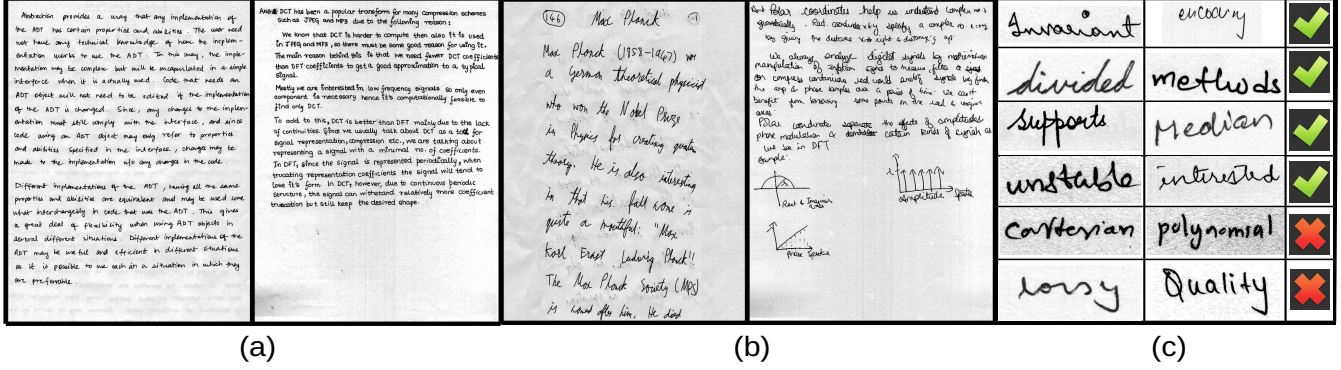 Abstraction provides a way that any implementation of
the ADT has certain properties and abilities. The user need
not have any technical knowledge of how the implem-
entation works to use the ADT. In this way, the imple-
mentation may be complex but will be encapsulated in a simple
interface when it is actually used. Code that needs an
ADT object will not need to be edited if the implementation
of the ADT is changed. Since, any changes to the implem-
entation must still comply with the interface, and since
code using an ADT object may only refer to properties
and abilities specified in the interface, changes may be
made to the implementation w/o any changes in the code.
Different implementations of the ADT, having all the same
properties and abilities are equivalent and may be used some
what interchangeably in code that uses the ADT. This gives
a great deal of flexibility when using ADT objects in
several different situations. Different implementations of the
ADT may be useful and efficient in different situations
so it is possible to use each in a situation in which they
are preferable.
DCT has been a popular transform for many compression schemes
such as JPEG and MP3 due to the following reason:
We know that DCT is harder to compute then also it is used
in JPEG and MP3, so there must be some good reason for using it.
The main reason behind this is that we need fewer DCT coefficients
than DFT coefficients to get a good approximation to a typical
signal.
Mostly we are interested in low frequency signals so only even
component is necessary hence it's computationally feasible to
find only DCT.
To add to this, DCT is better than DFT mainly due to the lack
of continuities. Since we usually talk about DCT as a tool for
signal representation, compression etc., we are talking about
representing a signal with a minimal no. of coefficients.
In DFT, since the signal is represented periodically, when
truncating representation coefficients the signal will tend to
lose its form. In DCT, however, due to continuous periodic
structure, the signal can withstand relatively more coefficient
truncation but still keep the desired shape.
(a)
146 Max Planck
Max Planck (1858-1947) was
a German theoretical physicist
who won the Nobel Prize
in Physics for creating quantum
theory. He is also interesting
in that his full name is
quite a mouthful: "Max
Karl Ernst Ludwig Planck"!
The Max Planck Society (MPS)
is named after him. He died
Polar coordinates help us understand complex no.s
geometrically.
We always analyse digital signals by
Polar coordinate separate the effects of amplitude &
phase modulation &
we see in DFT
Example:
Real & Imaginary
Amplitude
Phase Spectra
(b)
Invariant encoding
divided methods
supports Median
unstable interested
cartesian polynomial
lossy Quality
(c)